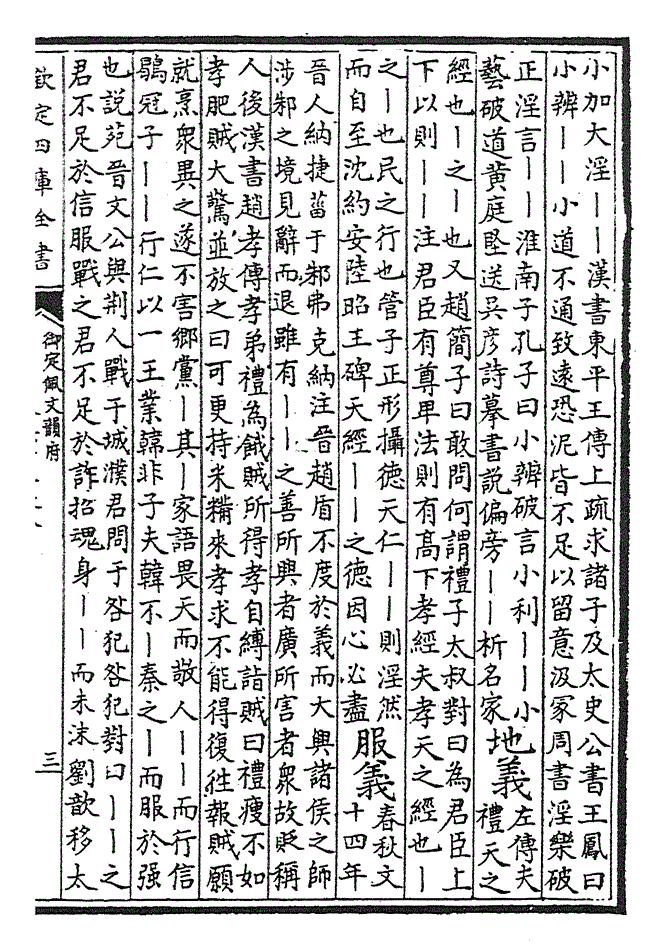 小加大淫丨丨漢書東平王傳上疏求諸子及太史公書王鳳曰
小辨丨丨小道不通致逺恐泥皆不足以留意汲冡周書淫樂破
正淫言丨丨淮南子孔子曰小辨破言小利丨丨小
藝破道黄庭堅送吳彦詩摹書説偏旁丨丨析名家
地義
左傳夫
禮天之
經也丨之丨也又趙簡子曰敢問何謂禮子太叔對曰為君臣上
下以則丨丨注君臣有尊卑法則有髙下孝經夫孝天之經也丨
之丨也民之行也管子正形攝德天仁丨丨則淫然
而自至沈約安陸昭王碑天經丨丨之德因心必盡
服義
春秋文
十四年
晉人納捷菑于邾弗克納注晉趙盾不度於義而大興諸侯之師
涉邾之境見辭而退雖有丨丨之善所興者廣所害者衆故貶稱
人後漢書趙孝傳孝弟禮為餓賊所得孝自縛詣賊曰禮瘦不如
孝肥賊大驚並放之曰可更持米糒來孝求不能得復徃報賊願
就烹衆異之遂不害鄉黨丨其丨家語畏天而敬人丨丨而行信
鶡冠子丨丨行仁以一王業韓非子夫韓不丨秦之丨而服於强
也説苑晉文公與荆人戰于城濮君問于咎犯咎犯對曰丨丨之
君不足於信服戰之君不足於詐招魂身丨丨而未沬劉歆移太
欽定四庫全書
御定佩文韻府
三